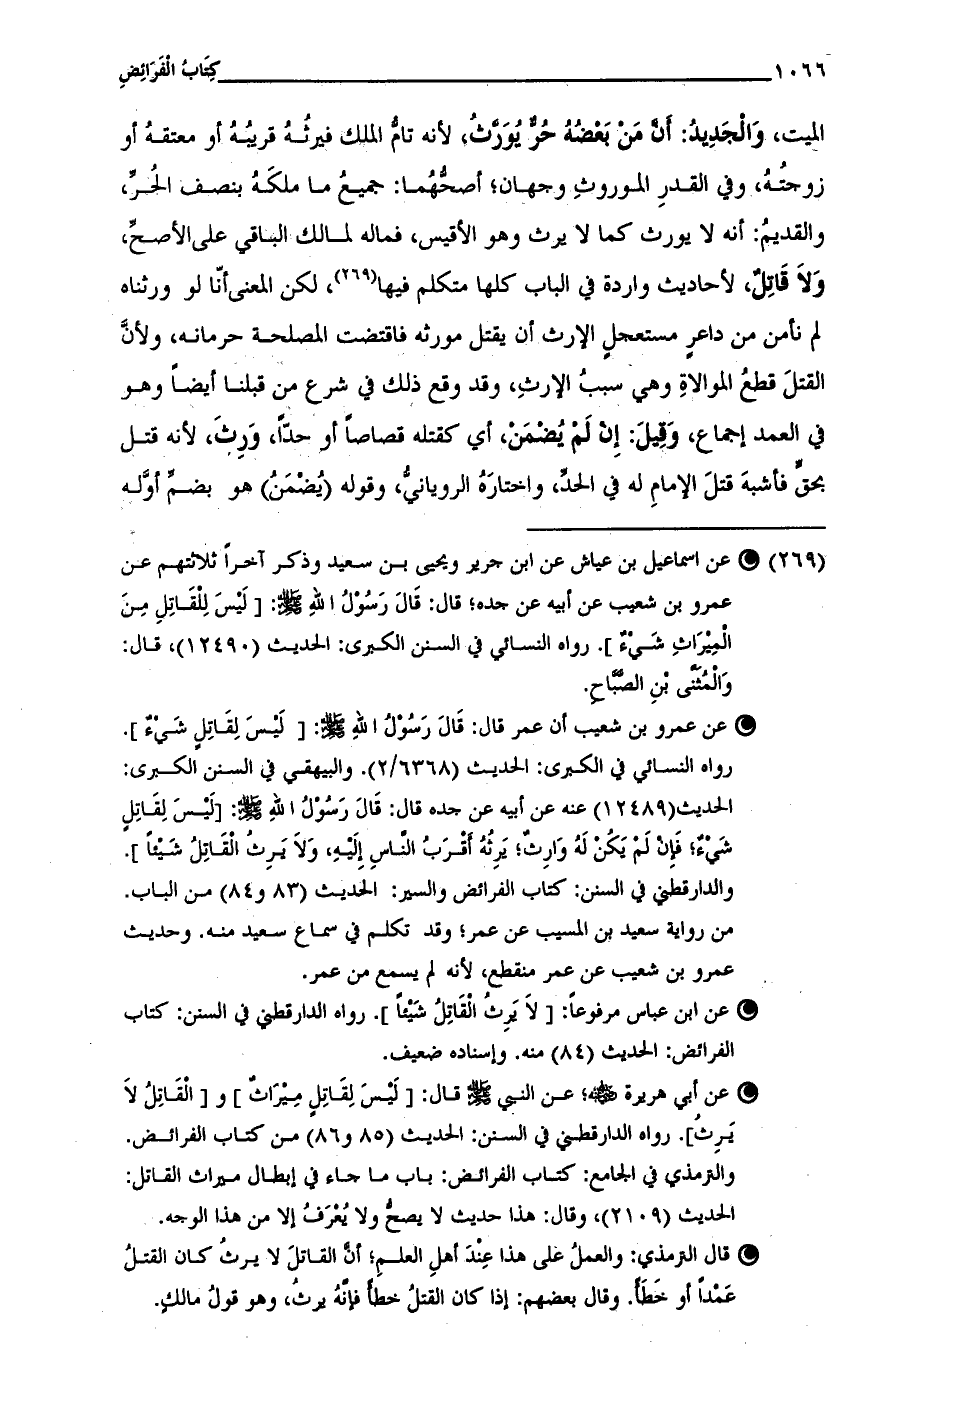 ١٠٦٦ كِتَابُ الْفَرَائِضِ
الميت، وَالْجَدِيدُ: أَنَّ مَنْ بَعْضُهُ حُرٌّ يُوَرَّثُ، لأنه تامُّ الملك فيرثُـهُ قريبُـهُ أو معتقـهُ أو
زوجتُـهُ، وفي القـدرِ المـوروثِ وجهـان؛ أصحُّهُمـا: جميـعُ ما ملكَـهُ بنصـف الحُـرِّ،
والقديمُ: أنه لا يورث كما لا يرث وهو الأقيس، فماله لمـالك الباقي على الأصـحِّ،
وَلاَ قَاتِلٌ، لأحاديث واردة في الباب كلها متكلم فيها(٢٦٩)، لكن المعنى أنَّا لو ورثناه
لم نأمن من داعرٍ مستعجلٍ الإرث أن يقتل مورثه فاقتضت المصلحة حرمانـه، ولأنَّ
القتلَ قطعُ الموالاةِ وهي سببُ الإرثِ، وقد وقع ذلك في شرع من قبلنـا أيضـاً وهـو
في العمد إجماع، وَقِيلَ: إِنْ لَمْ يُضْمَنْ، أي كقتله قصاصاً أو حدّاً، وَرِثَ، لأنه قتـل
بحقٍّ فأشبهَ قتلَ الإمامِ له في الحدِّ، واختارَهُ الرويانيُّ، وقوله (يُضْمَنُ) هو بضـمِّ أوَّلـه
(٢٦٩) عن اسماعيل بن عياش عن ابن جرير ويحيى بـن سعيد وذكـر آخـراً ثلاثتهـم عـن
عمرو بن شعيب عن أبيه عن جده؛ قال: قَالَ رَسُوْلُ اللهِ ﷺ: [ لَيْسَ لِلْقَاتِلِ مِـنَ
الْمِيْرَاثِ شَـيْءٌ ]. رواه النسـائي في السنن الكبرى: الحديـث (١٢٤٩٠)، قـال:
وَالْمُثَنَّى بْنِ الصَّبَّاحِ.
عن عمرو بن شعيب أن عمر قال: قَالَ رَسُوْلُ اللهِ ﷺ: [ لَيْـسَ لِقَـاتِلٍ شَيْءٌ ].
رواه النسائي في الكبرى: الحديث (٢/٦٣٦٨). والبيهقـي في السـنن الكـبرى:
الحديث(١٢٤٨٩) عنه عن أبيه عن جده قال: قَالَ رَسُوْلُ اللهِ ﷺ: [لَيْـسَ لِقَـاتِلٍ
شَيْءٌ؛ فَإِنْ لَمْ يَكُنْ لَهُ وَارِثٌ؛ يَرِثُهُ أَقْـرَبُ النَّاسِ إِلَيْهِ، وَلاَ يَـرِثُ الْقَـاتِلُ شَيْئاً ].
والدارقطني في السنن: كتاب الفرائض والسير: الحديـث (٨٣ و٨٤) مـن الباب.
من رواية سعيد بن المسيب عن عمر؛ وقد تكلـم في سماع سعيد منـه. وحديـث
عمرو بن شعيب عن عمر منقطع، لأنه لم يسمع من عمر.
عن ابن عباس مرفوعاً: [ لاَ يَرِثُ الْقَاتِلُ شَيْئاً ]. رواه الدارقطني في السنن: كتاب
الفرائض: الحديث (٨٤) منه. وإسناده ضعيف.
عن أبي هريرة ﷺ؛ عـن النبي ﷺ قـال: [ لَيْـسَ لِقَـاتِلٍ مِـيْرَاثٌ ] و [ الْقَاتِلُ لاَ
يَـرِثُ]. رواه الدارقطـني في السنن: الحديث (٨٥ و٨٦) مـن كتاب الفرائـض.
والترمذي في الجامع: كتاب الفرائض: بـاب مـا جـاء في إبطـال مـيراث القـاتل:
الحديث (٢١٠٩)، وقال: هذا حديث لا يصحُّ ولا يُعْرَفُ إلا من هذا الوجه.
قال الترمذي: والعملُ على هذا عِنْدَ أهلِ العلمِ؛ أنَّ القاتلَ لا يرثُ كان القتلُ
عَمْداً أو خَطَأً. وقال بعضهم: إذا كان القتلُ خطأً فإنَّهُ يرثُ، وهو قولُ مالكٍ.